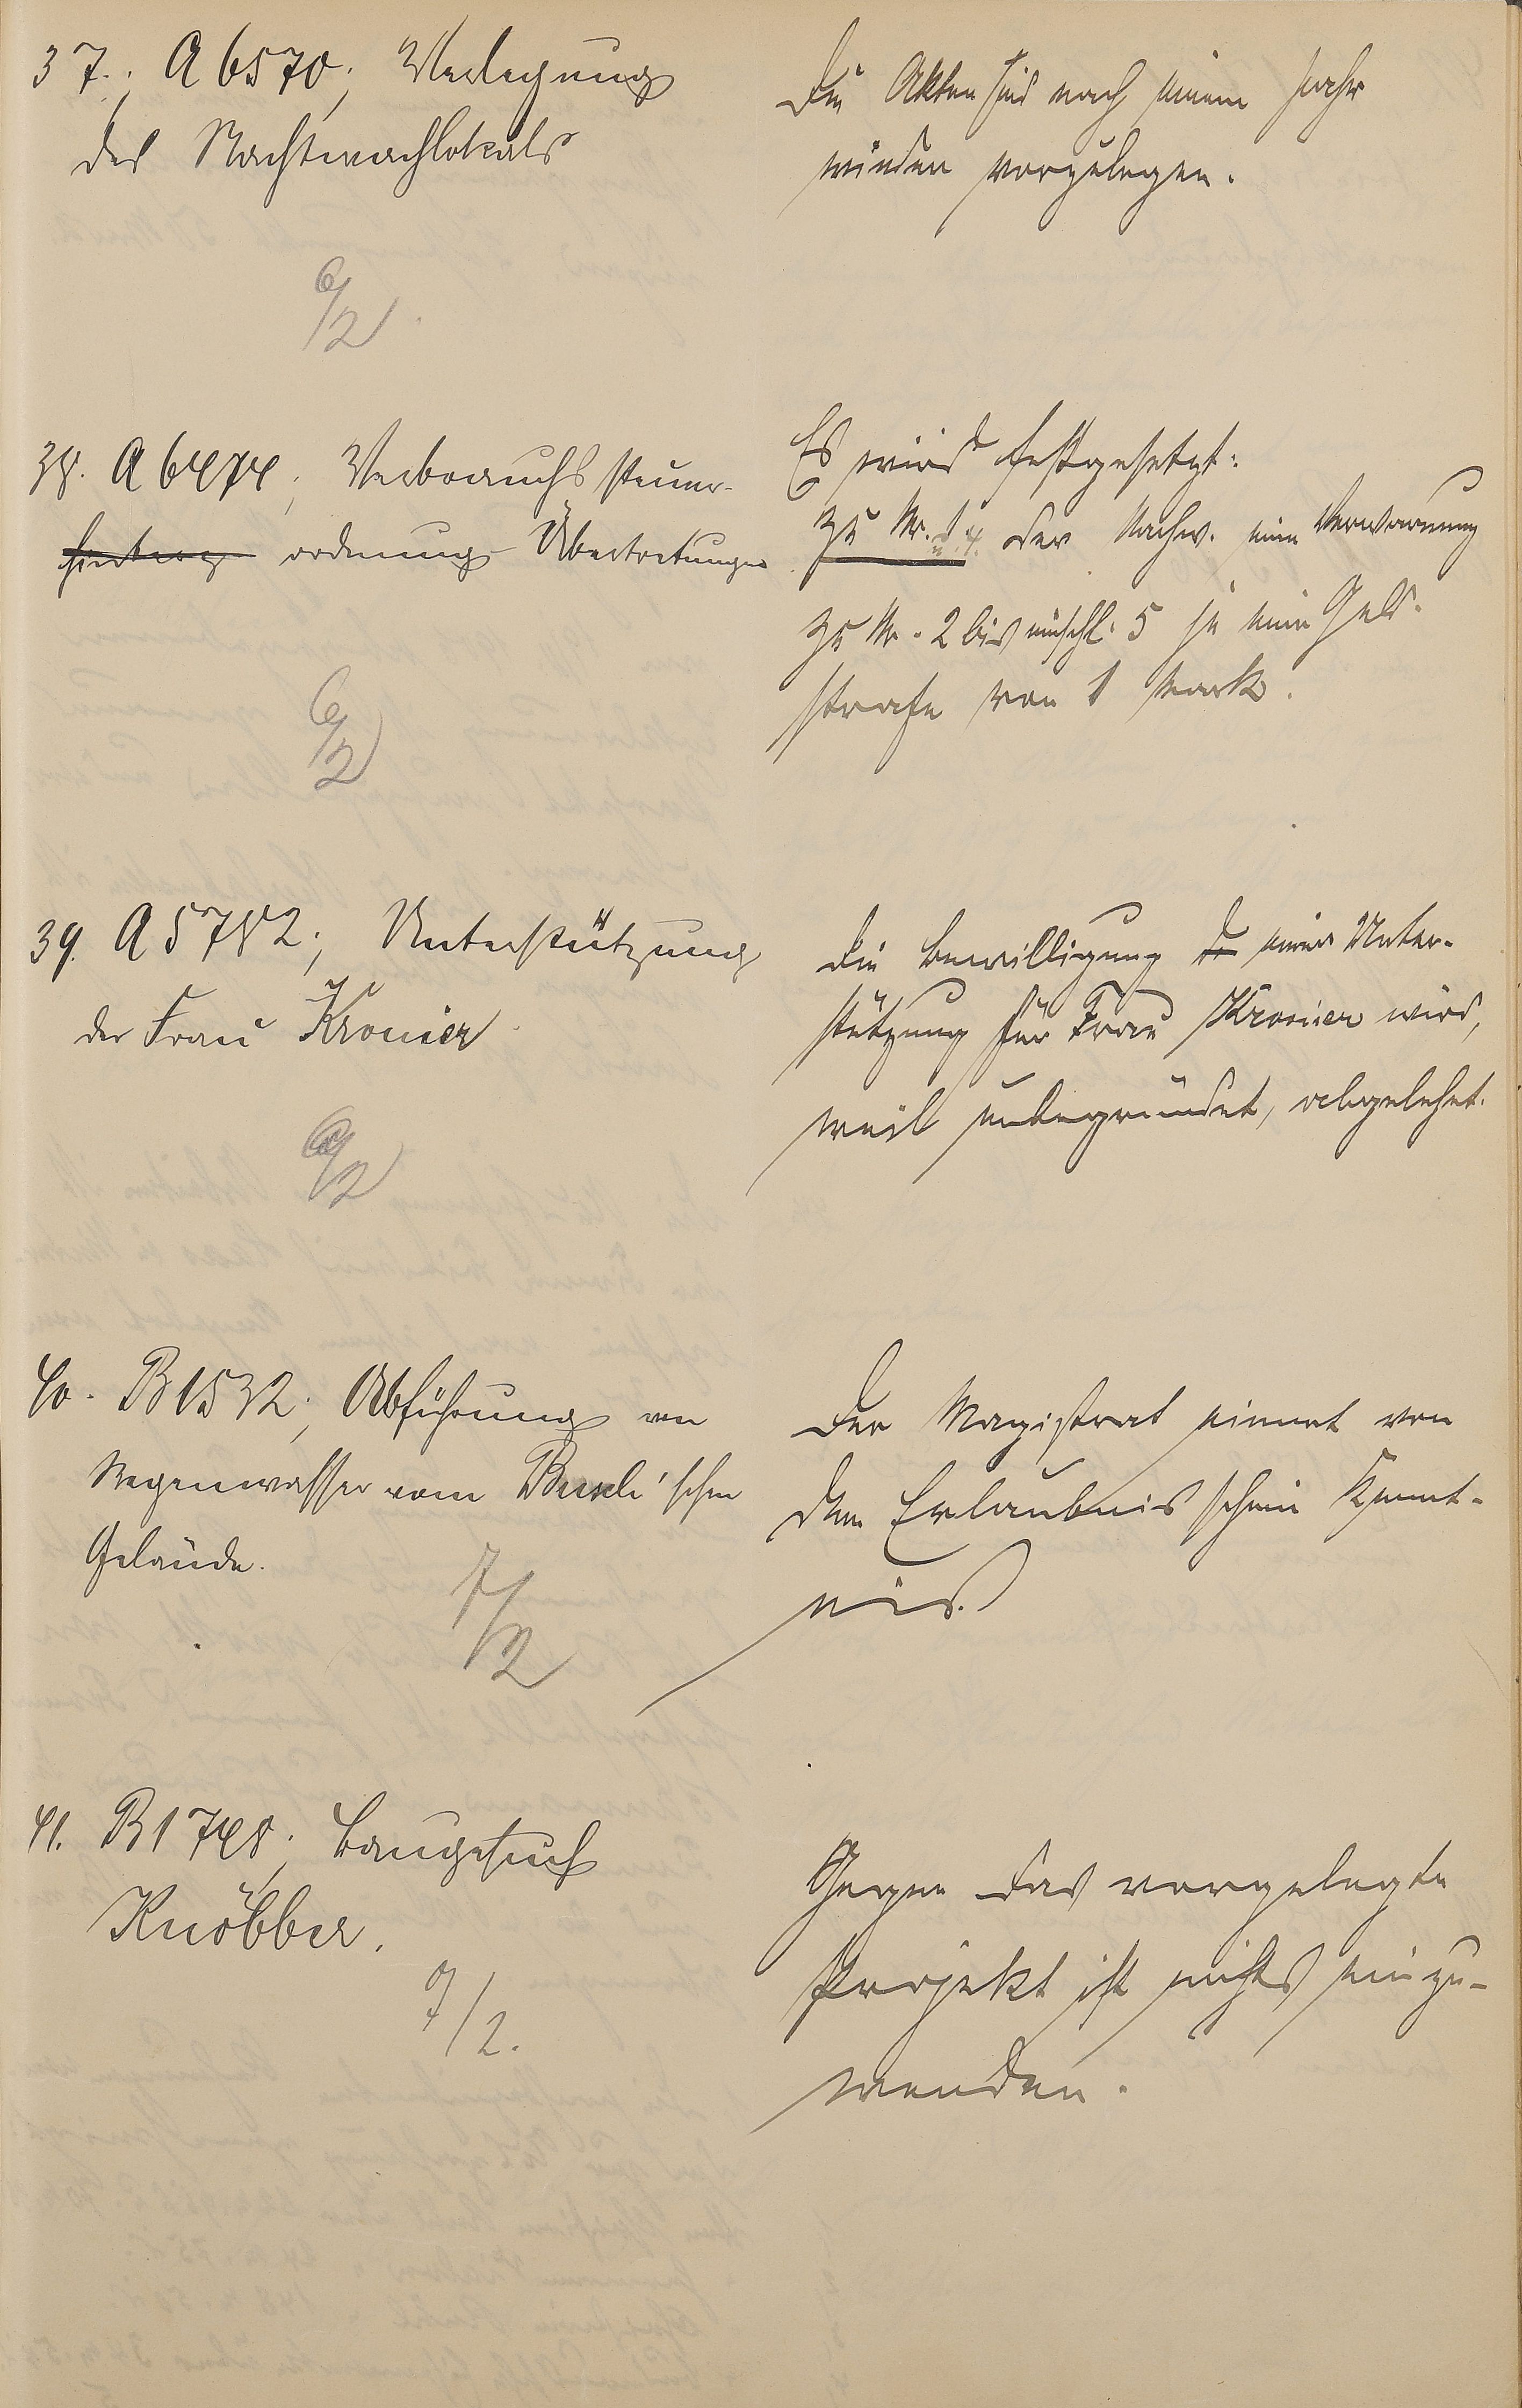 37. A 6570; Verlegung
des Nachtwachlokals
Die Akten sind nach einem Jahr
wieder vorzulegen.
6/2
38. A 6474; Verbrauchssteuer-
ordnung Übertretungen
Es wird festgesetzt:
Zu Nr. 1 der Nachw. eine Verwarnung
zu Nr. 2 bis einschl. 5 je eine Geld-
strafe von 1 Mark.
6/2
39. A 5782; Unterstützung
der Frau Kronier
Die Bewilligung einer Unter-
stützung für Frau Kronier wird,
weil unbegründet, abgelehnt.
6/2
40. B 1532; Abführung von
Regenwasser vom Busch'schen
Gelände.
Der Magistrat nimmt von
dem Erlaubnisschein Kennt-
nis.
7/2
41. B 1748; Baugesuch
Knöbber.
Gegen das vorgelegte
Projekt ist nichts einzu-
wenden.
7/2.